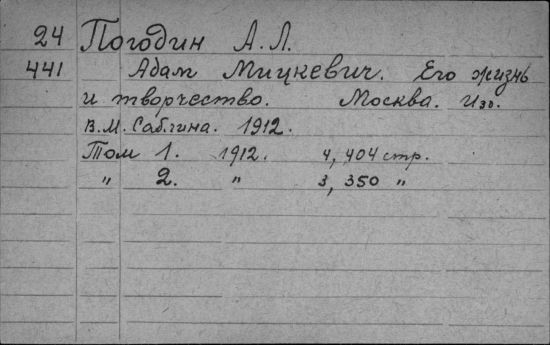 24 Погодин А.Л.
441 Адам Мицкевич. Его жизнь
и творчество. Москва. Изд.
В.М. Саблина. 1912.
Том 1. 1912. 4, 404 стр.
" 2. " 3, 350 "